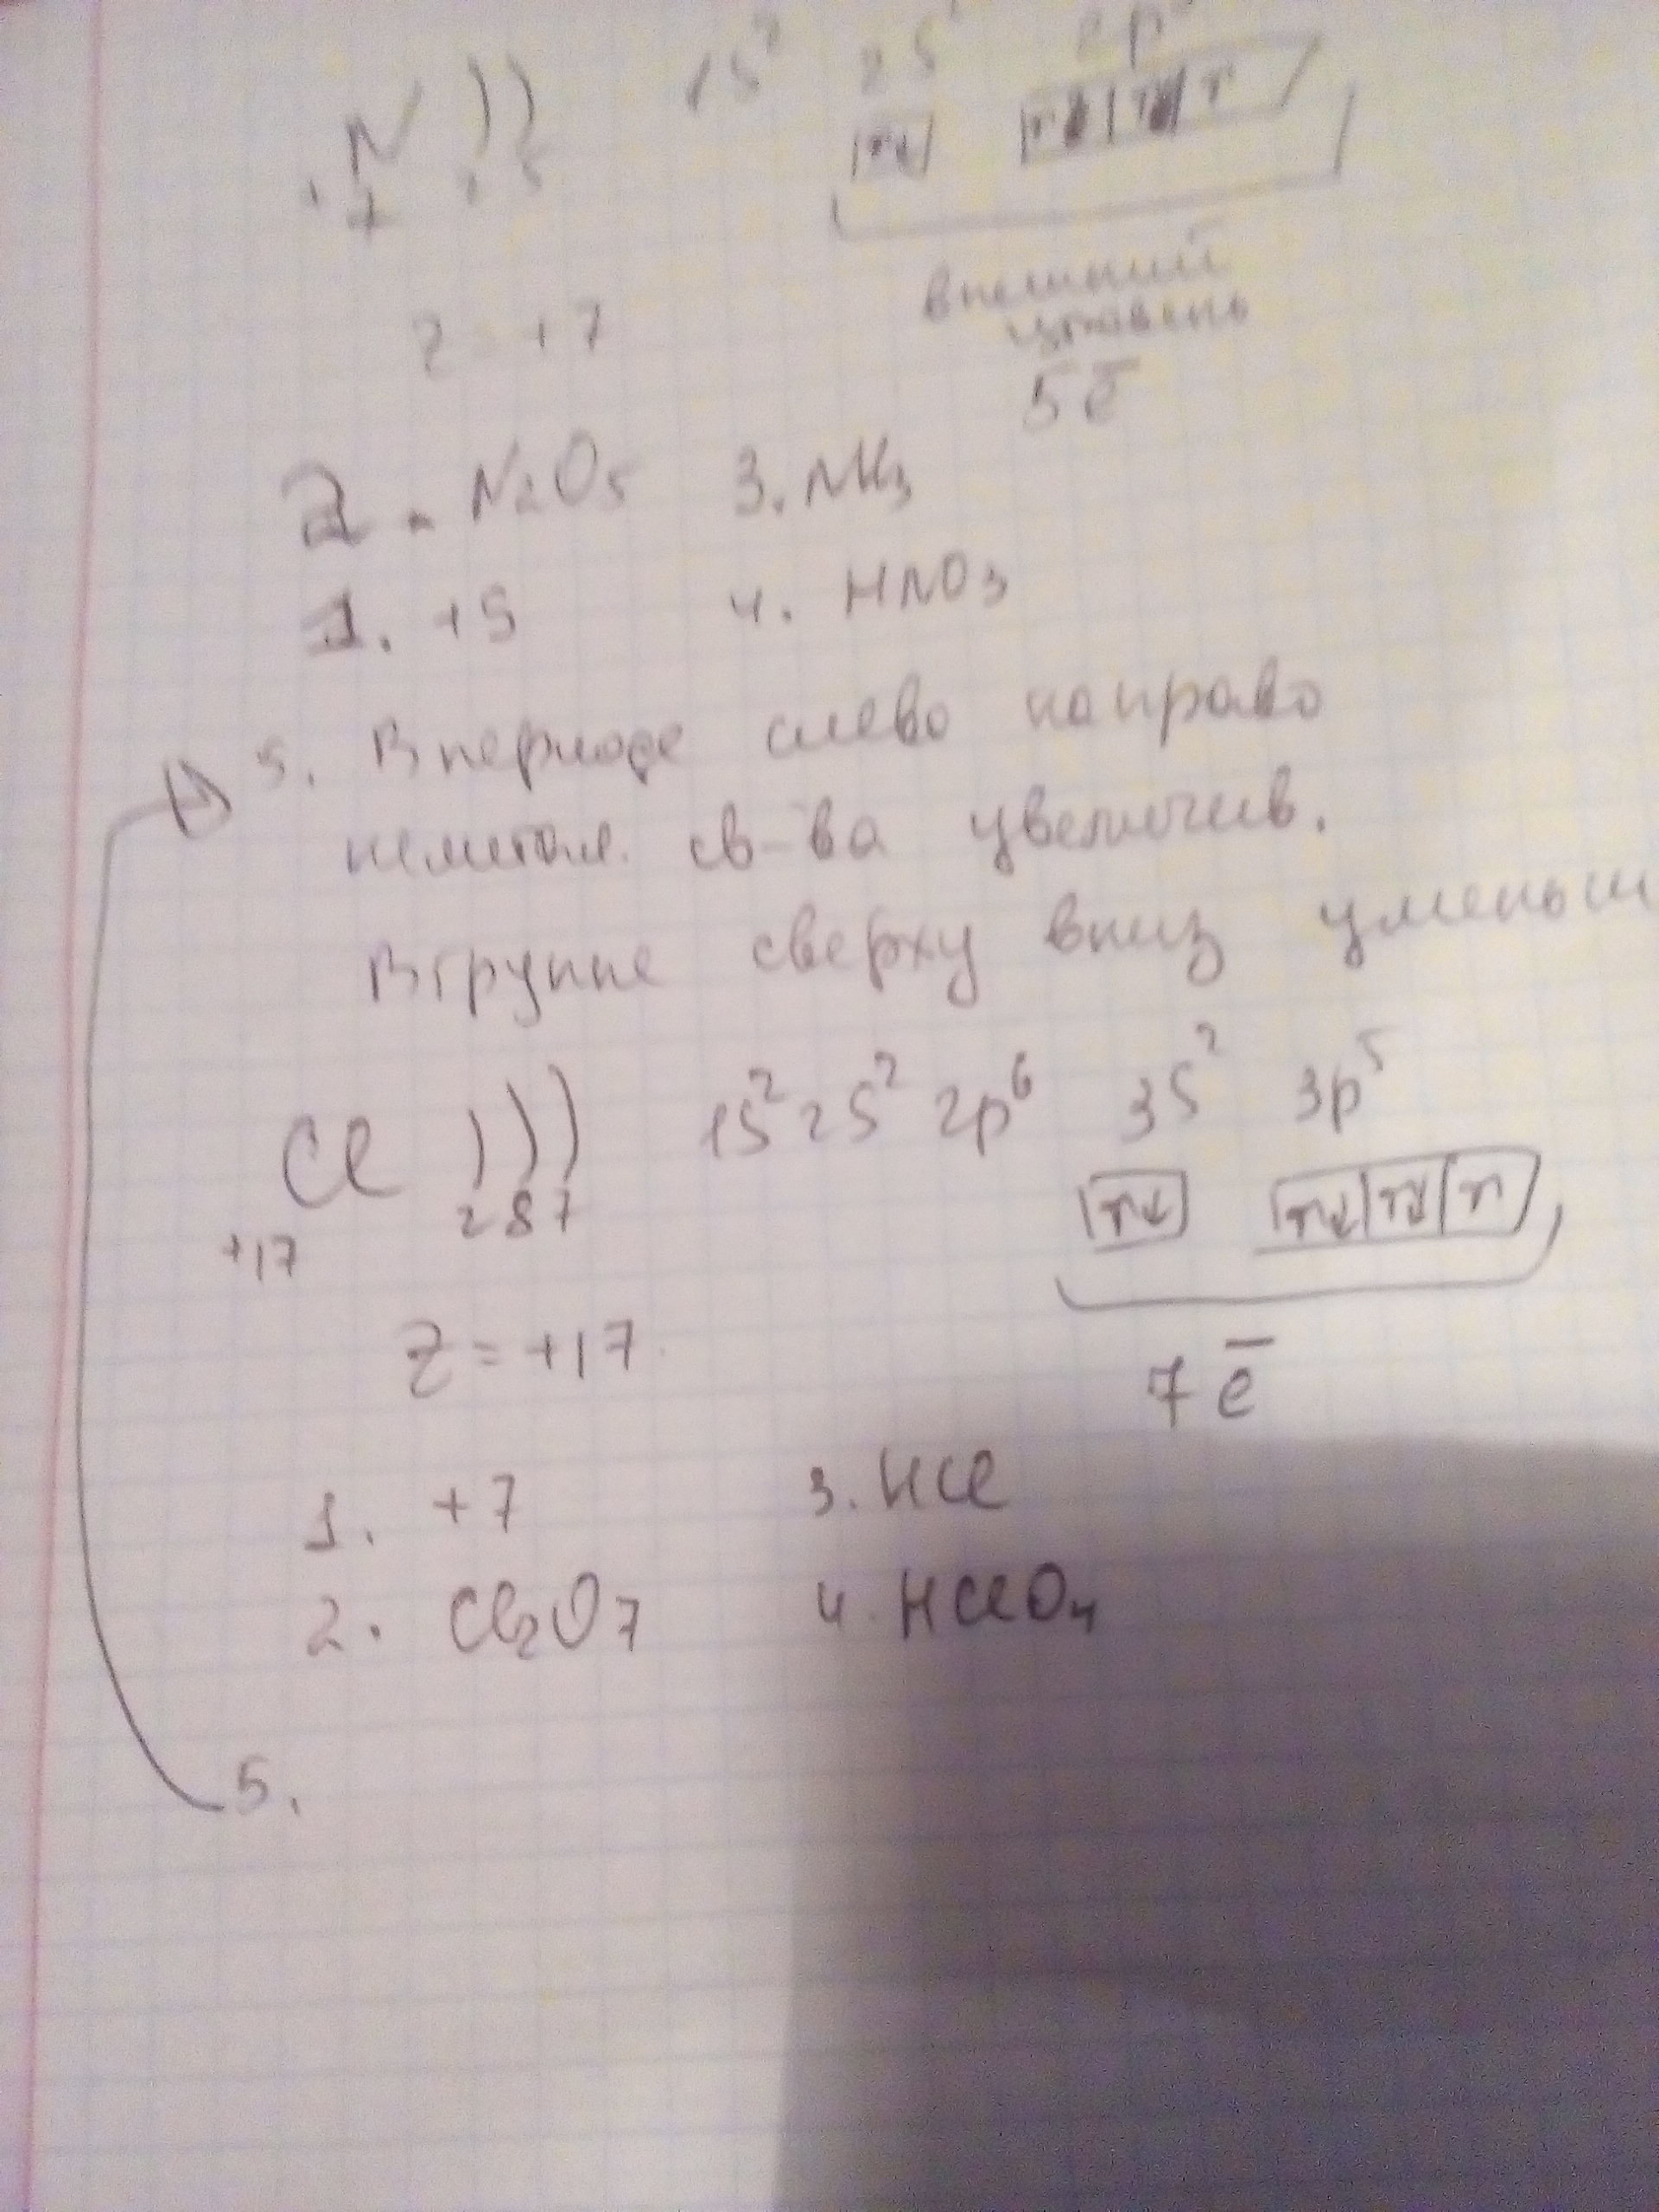 1s² 2s² 2p
N ))
+7 2 5
внешний
уровень
Z = +7
5ē
2. N₂O₅ 3. NH₃
1. +5 4. HNO₃
5. В периоде слево направо
неметал. св-ва увеличив.
В группе сверху вниз уменьш
Cl ))) 1s² 2s² 2p⁶ 3s² 3p⁵
+17 2 8 7
↑↓ ↑↓ ↑↓ ↑
Z = +17
7ē
1. +7 3. HCl
2. Cl₂O₇ 4. HClO₄
5.